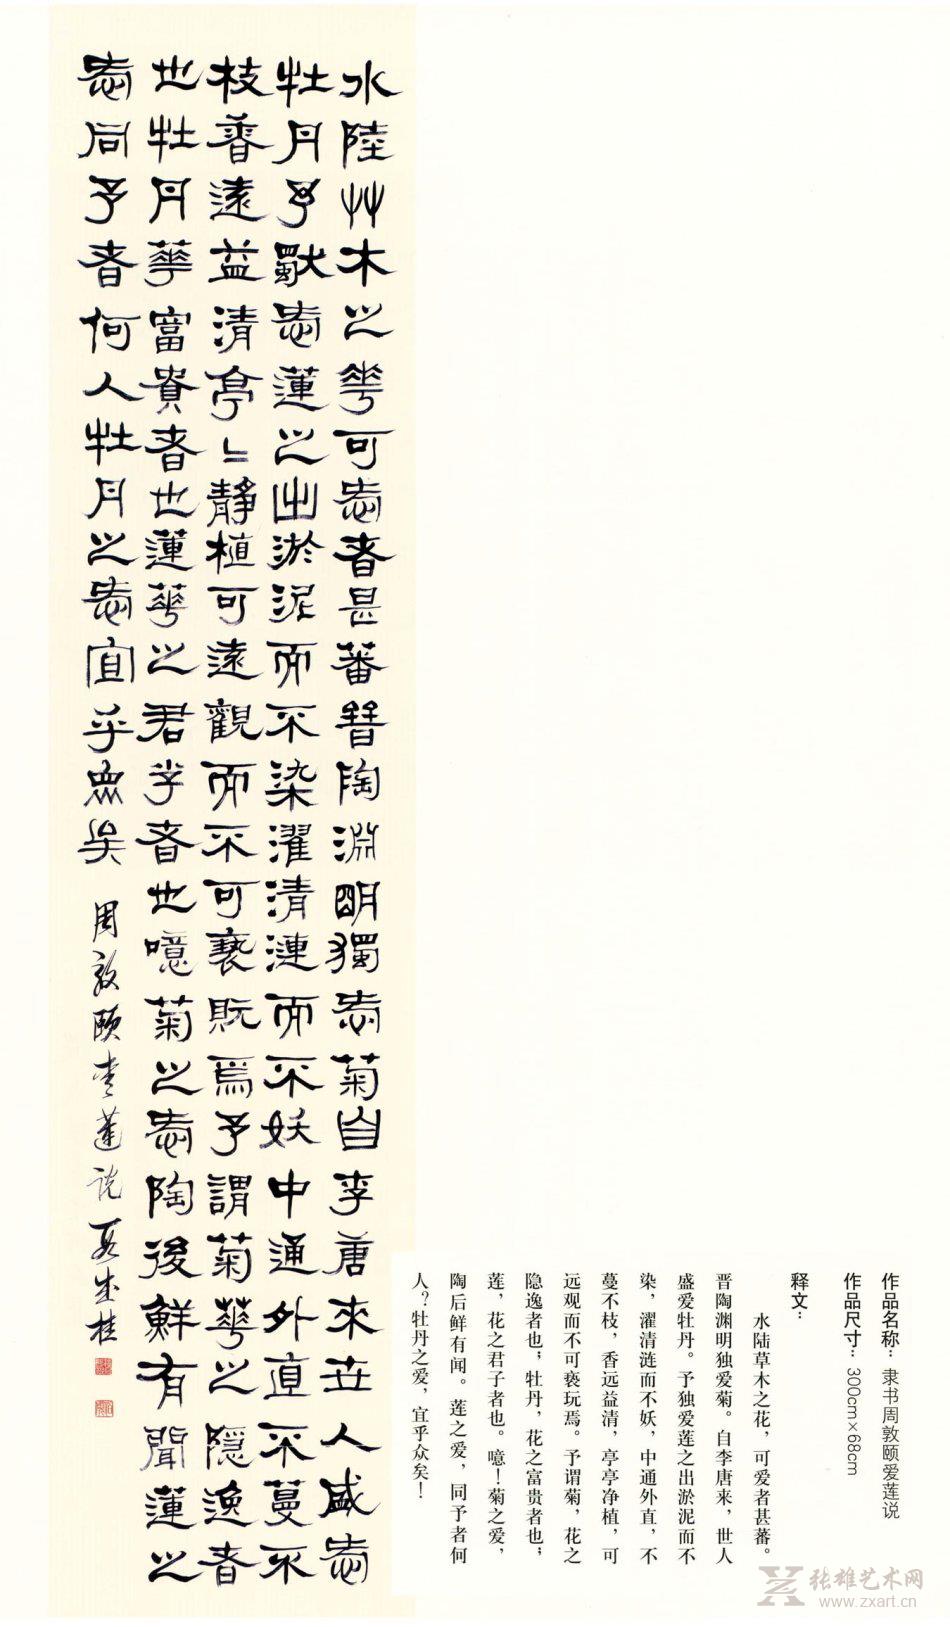 水陸艸木之華可㤅者甚蕃晉陶淵明獨㤅菊自李唐來世人盛㤅
牡丹予獨㤅蓮之出淤泥而不染濯清漣而不妖中通外直不蔓不
枝香遠益清亭〻靜植可遠觀而不可褻翫焉予謂菊華之隱逸者
也牡丹華富貴者也蓮華之君子者也噫菊之㤅陶後鮮有聞蓮之
㤅同予者何人牡丹之㤅宜乎眾矣
周敦頤愛蓮說
作品名称：隶书周敦颐爱莲说
作品尺寸：300cm×68cm
释文：
水陆草木之花，可爱者甚蕃。
晋陶渊明独爱菊。自李唐来，世人
盛爱牡丹。予独爱莲之出淤泥而不
染，濯清涟而不妖，中通外直，不
蔓不枝，香远益清，亭亭净植，可
远观而不可亵玩焉。予谓菊，花之
隐逸者也；牡丹，花之富贵者也；
莲，花之君子者也。噫！菊之爱，
陶后鲜有闻。莲之爱，同予者何
人？牡丹之爱，宜乎众矣！
张雄艺术网
www.zxart.cn